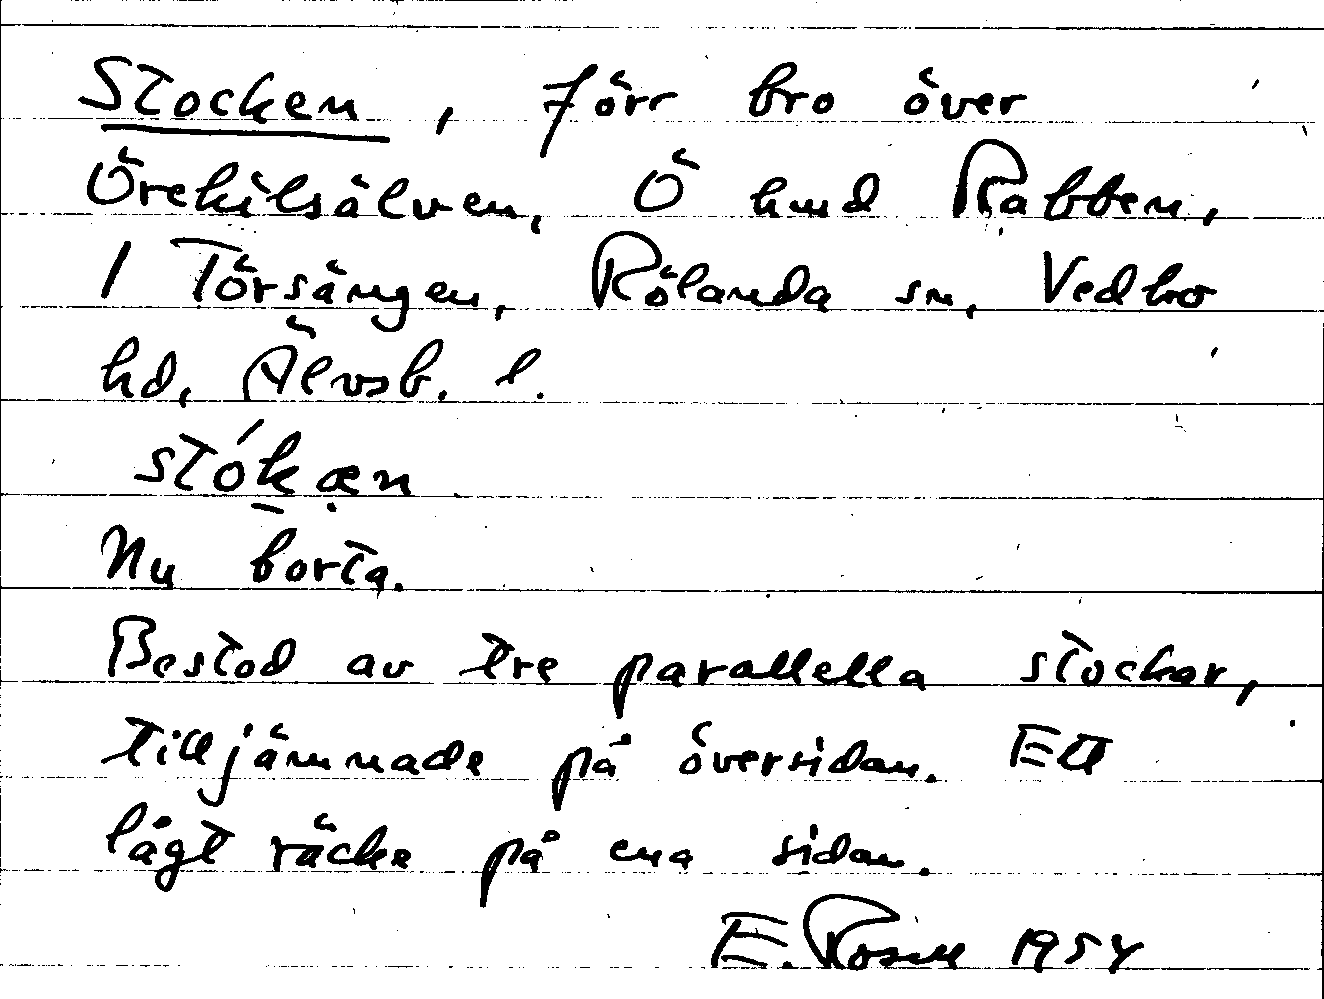 Stocken, förr bro över
Örekilsälven, Ö hmd Rabben,
1 Törsängen, Rölanda sn, Vedbo
hd, Älvsb. l.
stókæn
Nu borta.
Bestod av tre parallella stockar,
tilljämnade på översidan. Ett
lågt räcke på ena sidan.
E. Rosell 1954